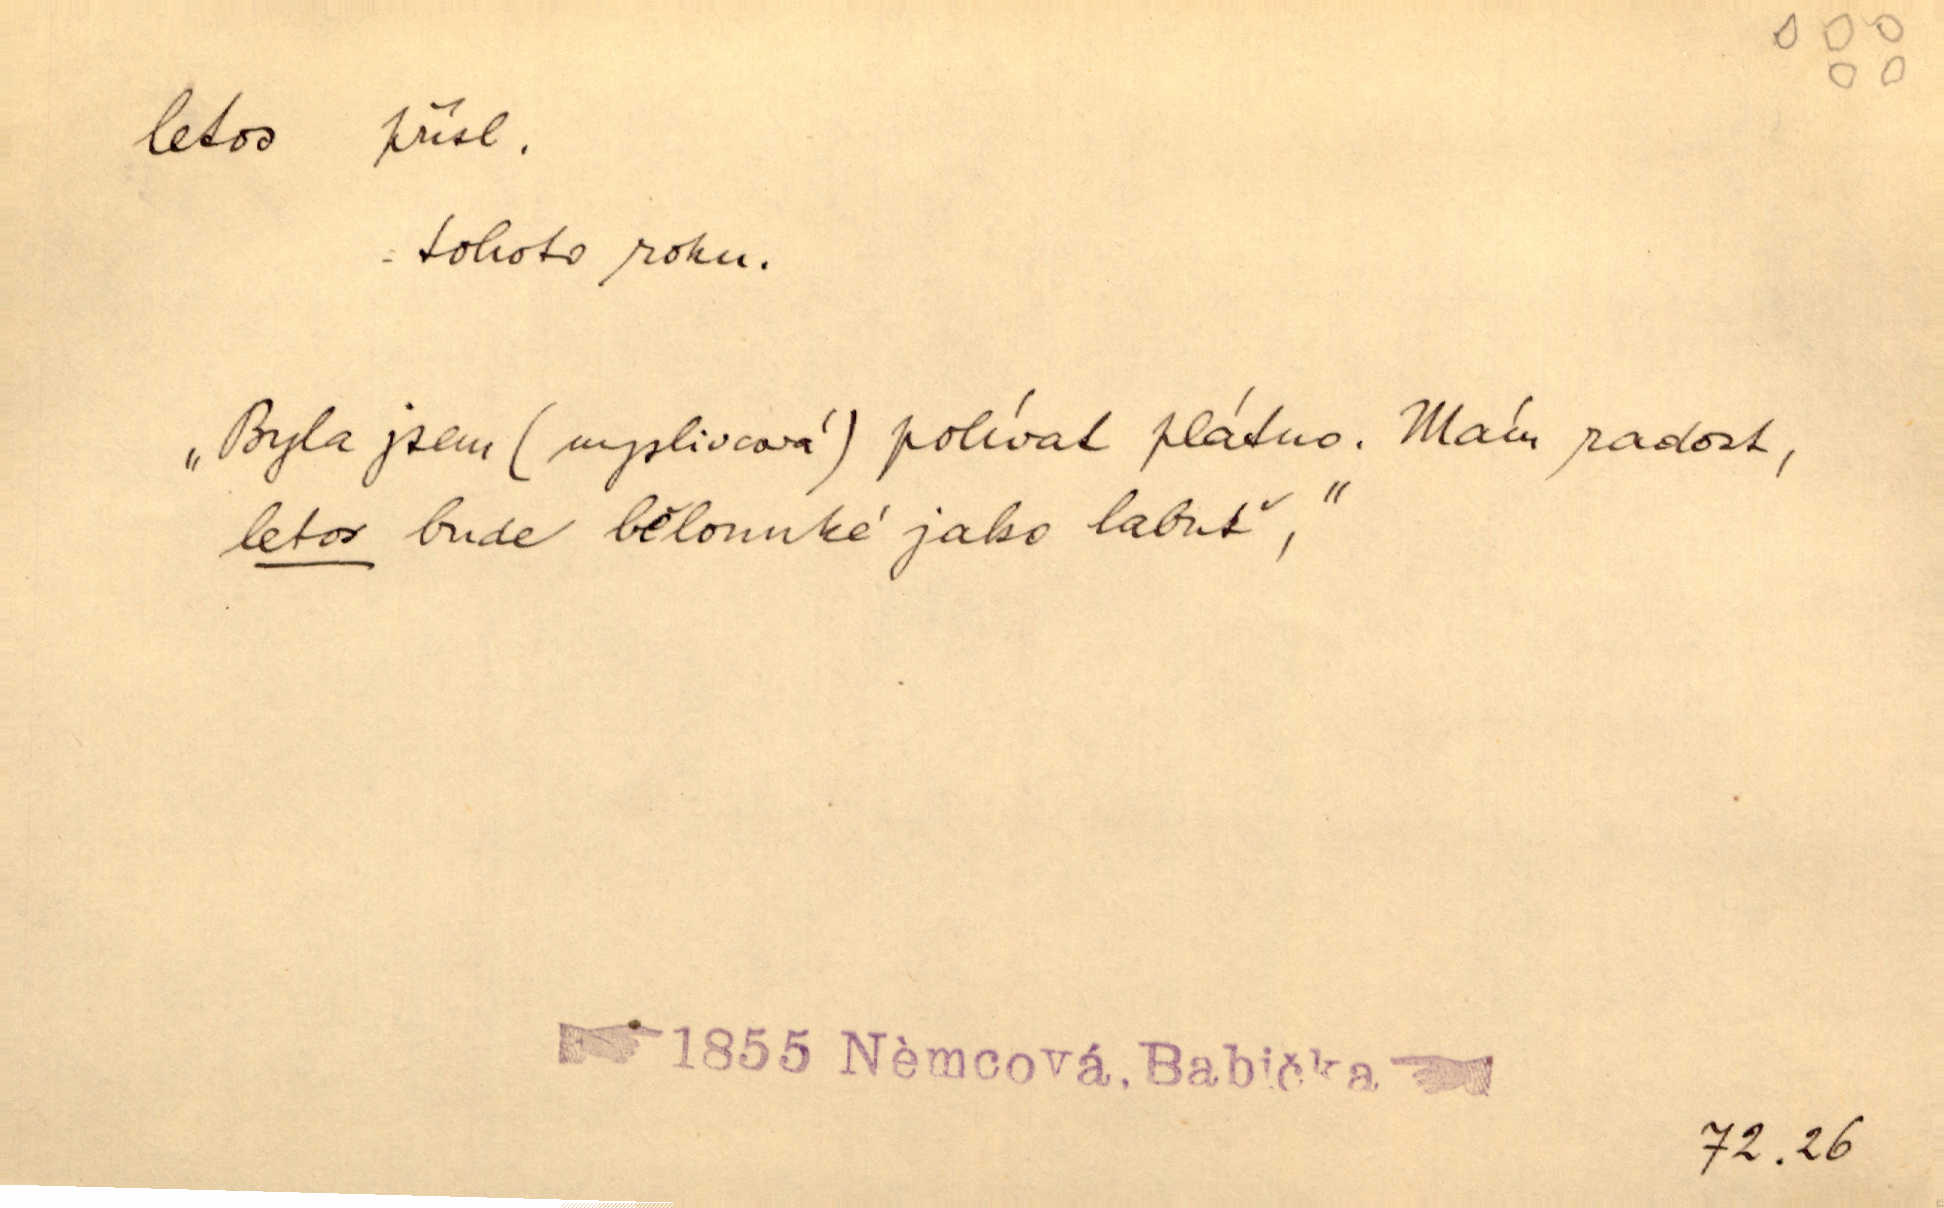 letos přísl.
= tohoto roku.
„Byla jsem (myslivcová) polívat plátno. Mám radost,
letos bude bělounké jako labuť,"
1855 Němcová, Babička
72.26